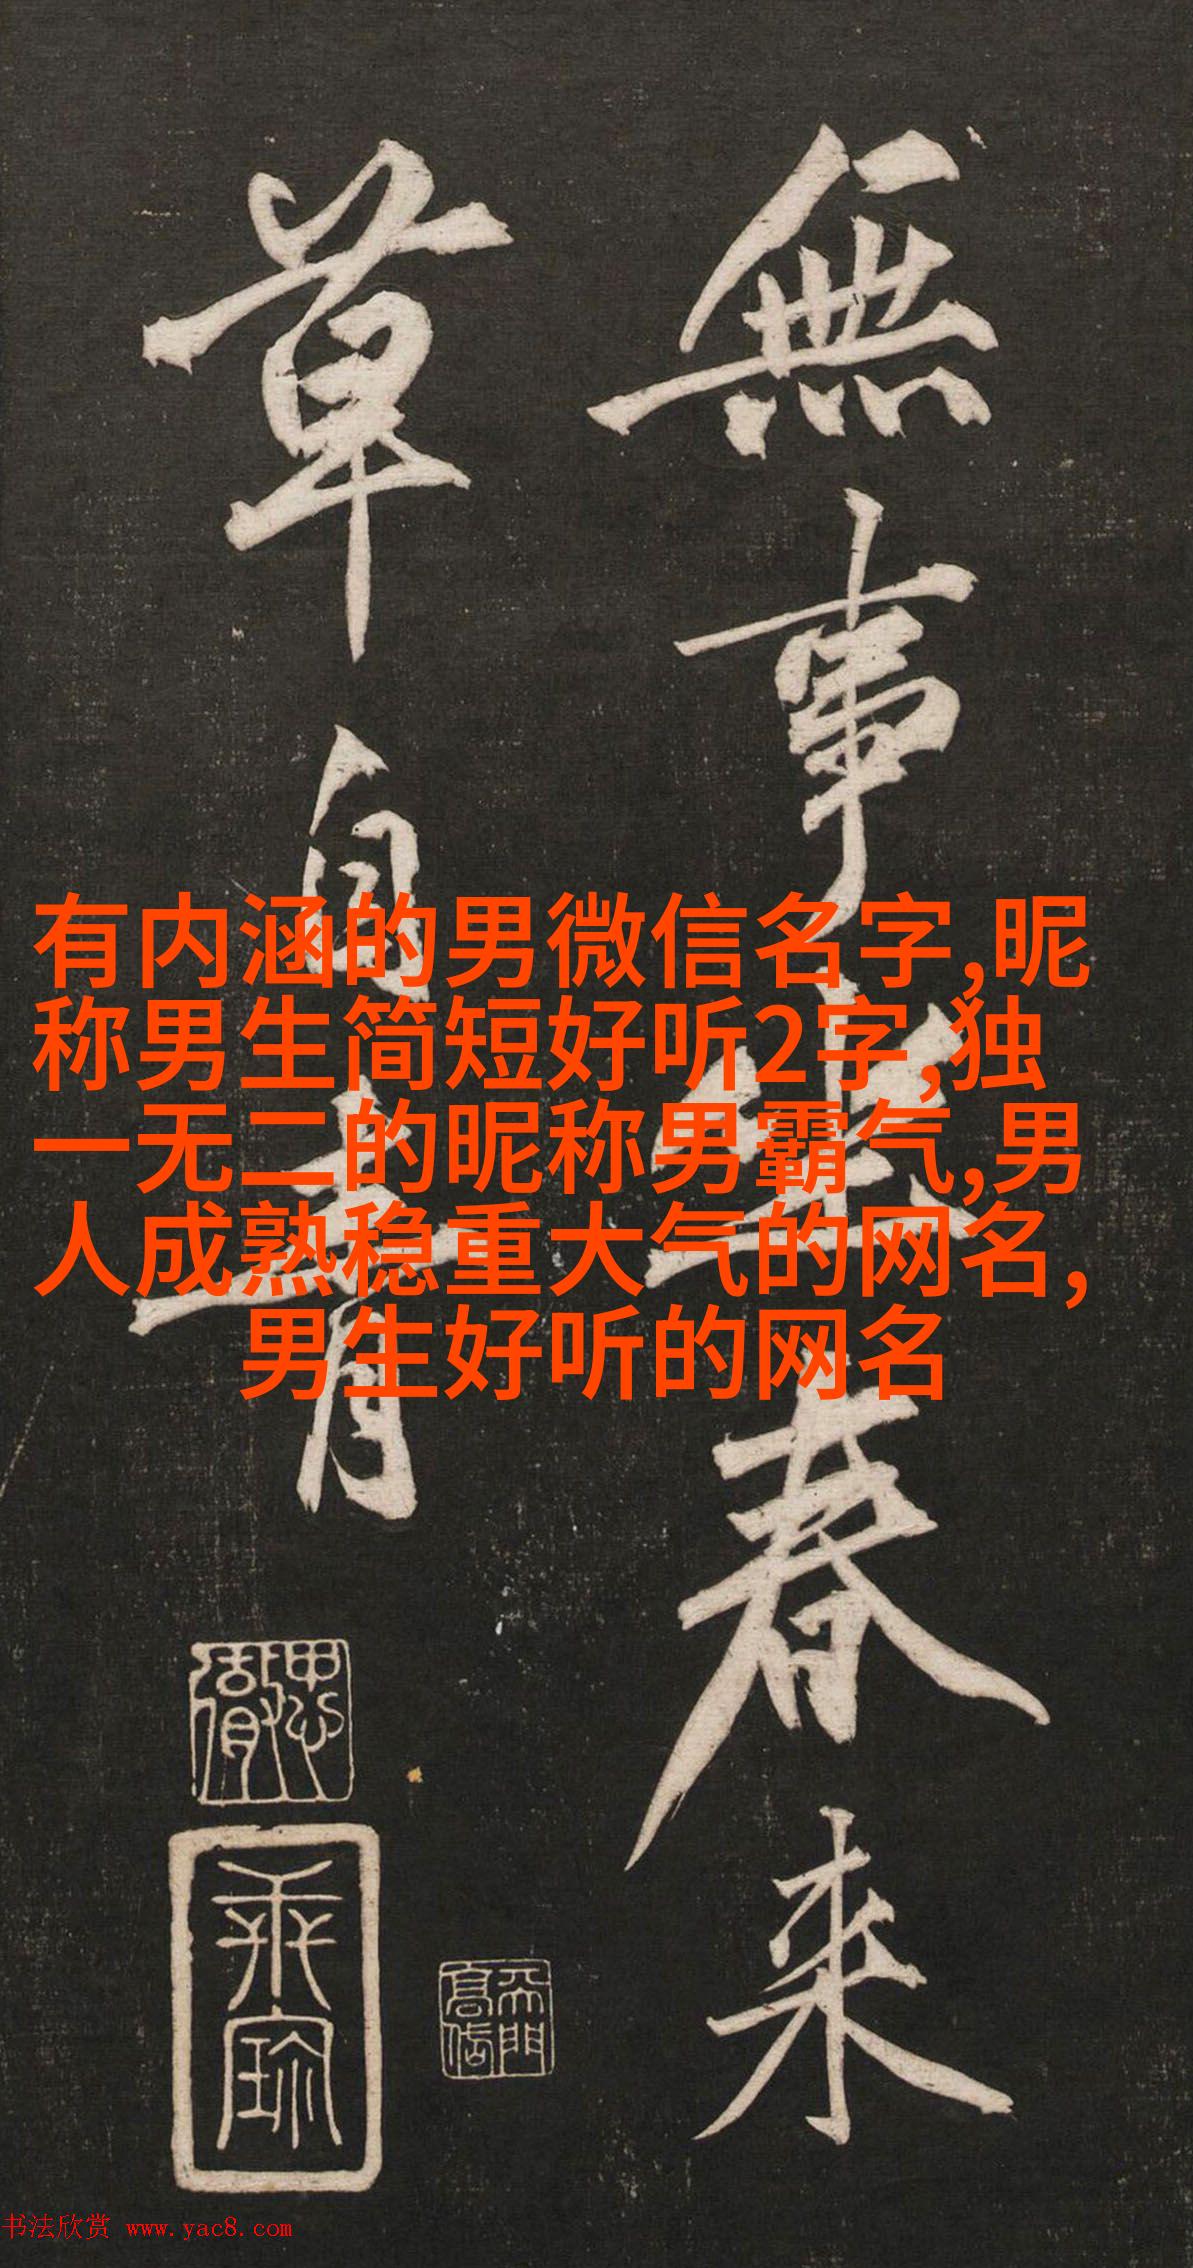 無事坐春来
草自青
有内涵的男微信名字,昵
称男生简短好听2字,独
一无二的昵称男霸气,男
人成熟稳重大气的网名,
男生好听的网名
书法欣赏 www.yac8.com